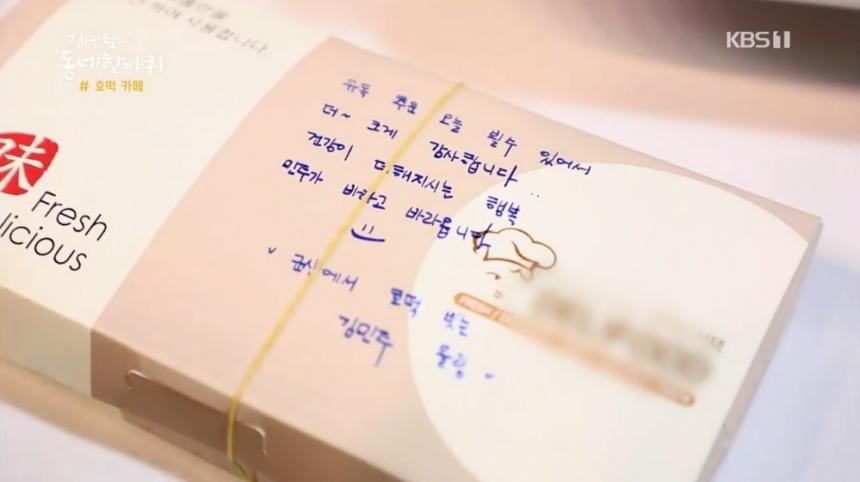 김영철의
동네한바퀴
# 호떡 카페
KBS1
하여 사용합니다.
味
Fresh
licious
유독 추운 오늘 뵐수 있어서
더~ 크게 감사합니다..
건강이 더해지시는 행복
민주가 바라고 바라옵니다
군산에서 호떡 빚는
김민주 올림
FRESH